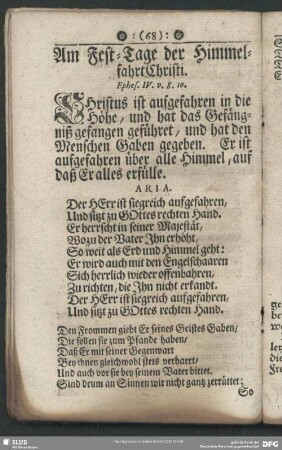 :(68):
Am Fest-Tage der Himmel-
fahrt Christi.
Ephes. IV. v. 8. 10.
CHristus ist aufgefahren in die
Höhe, und hat das Gefäng-
niß gefangen geführet, und hat den
Menschen Gaben gegeben. Er ist
aufgefahren über alle Himmel, auf
daß Er alles erfülle.
ARIA.
Der HErr ist siegreich aufgefahren,
Und sitzt zu GOttes rechten Hand.
Er herrscht in seiner Majestät,
Wozu der Vater Ihn erhöht,
So weit als Erd und Himmel geht:
Er wird auch mit den Engelschaaren
Sich herrlich wieder offenbahren,
Zu richten, die Ihn nicht erkandt.
Der HErr ist siegreich aufgefahren,
Und sitzt zu GOttes rechten Hand.
Den Frommen giebt Er seines Geistes Gaben,
Die sollen sie zum Pfande haben:
Daß Er mit seiner Gegenwart
Bey ihnen gleichwohl stets verharrt,
Und auch vor sie bey seinem Vater bittet.
Sind drum an Sinnen wir nicht gantz zerrüttet:
So
SLUB
DFG